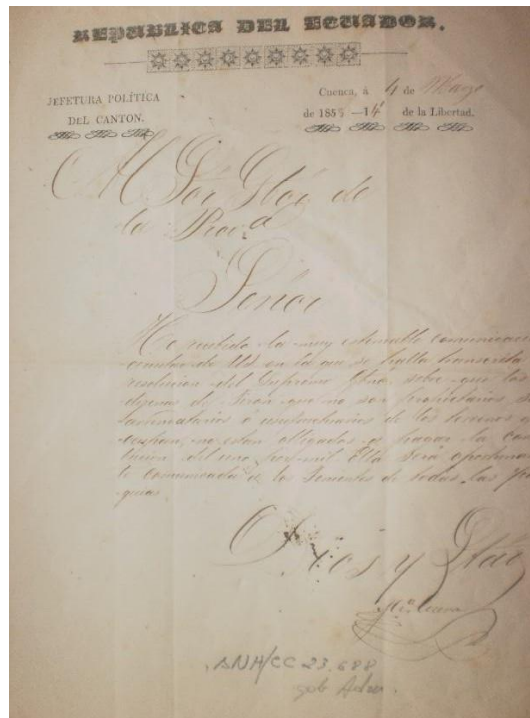 REPUBLICA DEL ECUADOR.
JEFETURA POLÍTICA
DEL CANTON.
Cuenca, á 4 de Marzo
de 1858 — 14 de la Libertad.
Al Sōr Gōr de
la Prov.a
Señor
He recibido la muy estimable comunicacion
circular de US en la que se halla transcrita
resolucion del Supremo Gbno. sobre que los
dijenas de Jiron que no son propietarios
ó usufructuarios de los terrenos
ocupan, no estan obligados a pagar la con
tribucion del uno por mil Ella será oportuna
te comunicada a los Tenientes de todas las
quias.
Dios y
ANH/CC 23.688
gob Adm.